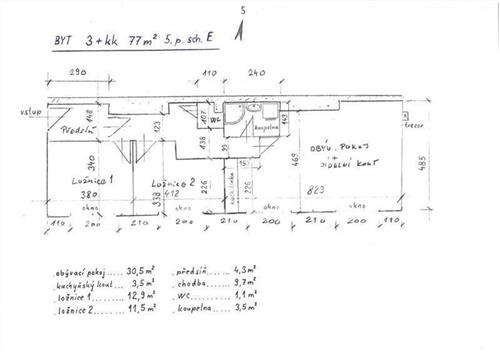 S
BYT 3+kk 77m² 5.p. sch. E
290
110
240
vstup
148
Předsíň
123
107
WC
138
koupelna
149
trezor
99
OBÝV. POKOJ
+
JÍDELNÍ KOUT
340
469
485
Ložnice 1
Ložnice 2
153
380
338
412
226
kuch. linka
226
823
okno
okno
okno
okno
110
200
210
200
210
200
210
200
110
obývací pokoj ..... 30,5 m²
kuchyňský kout ... 3,5 m²
ložnice 1 .......... 12,9 m²
ložnice 2 .......... 11,5 m²
předsíň ....... 4,3 m²
chodba ....... 9,7 m²
WC ......... 1,1 m²
koupelna ...... 3,5 m²